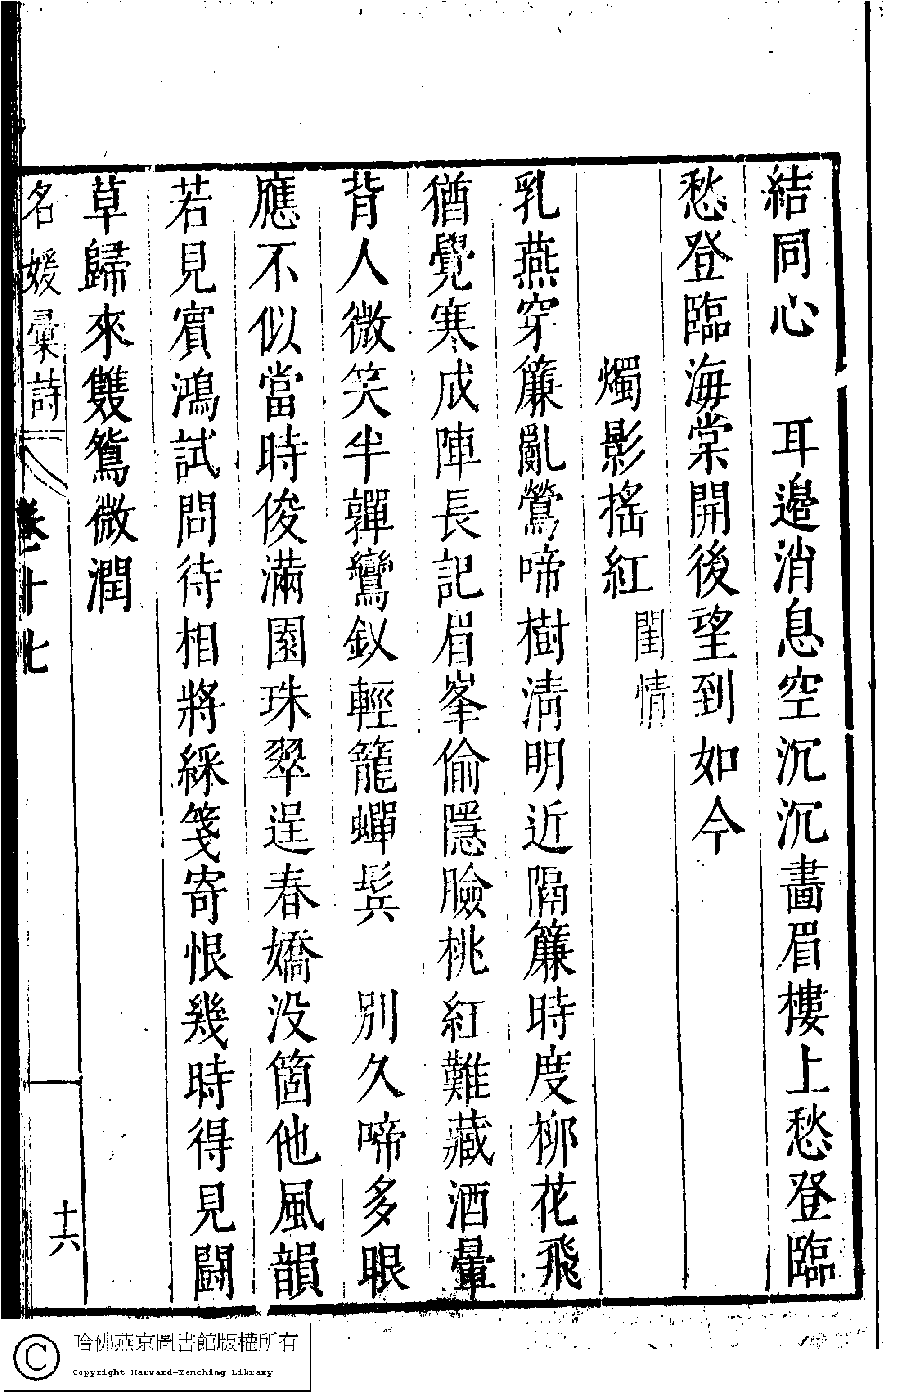 結同心　耳邉消息空沉沉畵眉樓上愁登臨
愁登臨海棠開後望到如今
燭影搖紅閨情
乳燕穿簾亂鶯啼樹清明近隔簾時度柳花飛
猶覺寒成陣長記眉峯偷隱臉桃紅難藏酒暈
背人微笑半嚲鸞釵輕籠蟬鬂　別久啼多眼
應不似當時俊滿園珠翠逞春嬌没箇他風韻
若見賔鴻試問待相將綵箋寄恨幾時得見鬭
草歸來雙鴛微潤
名媛彙詩
卷十七
十六
哈佛燕京圖書館版權所有
Copyright Harvard-Yenching Library